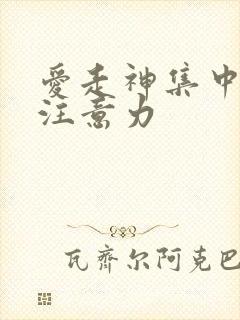 愛走神集中
注意力
瓦齊尔阿克巴